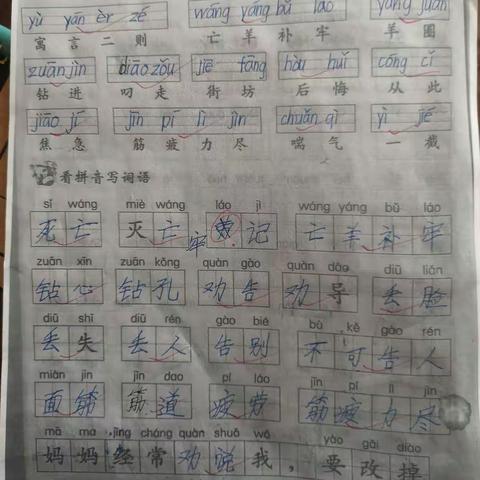 yù yán èr zé wáng yáng bǔ láo yáng juàn
寓言二则 亡羊补牢 羊圈
zuān jìn diāo zǒu jiē fāng hòu huǐ cóng cǐ
钻进 叼走 街坊 后悔 从此
jiāo jí jīn pí lì jìn chuǎn qì yì jié
焦急 筋疲力尽 喘气 一截
看拼音写词语
sǐ wáng miè wáng láo jì wáng yáng bǔ láo
死亡 灭亡 牢记 亡羊补牢
zuān xīn zuān kǒng quàn gào quàn dǎo diū liǎn
钻心 钻孔 劝告 劝导 丢脸
diū shī diū rén gào bié bù kě gào rén
丢失 丢人 告别 不可告人
miàn jīn jīn dao pí láo jīn pí lì jìn
面筋 筋道 疲劳 筋疲力尽
mā ma jīng cháng quàn shuō wǒ yào gǎi diào
妈妈经常劝说我，要改掉